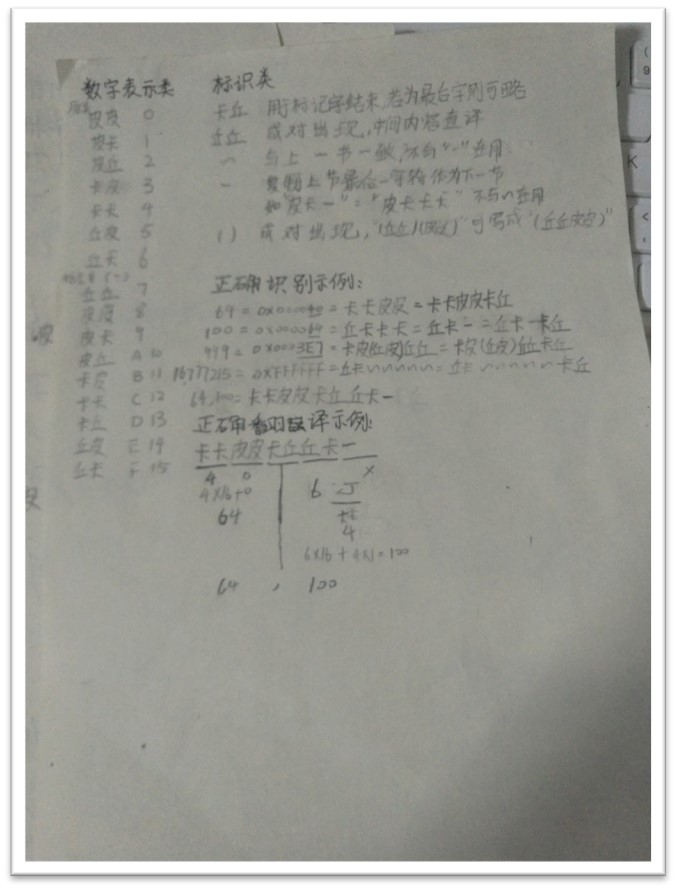 数字表示类
皮皮 0
皮卡 1
皮丘 2
卡皮 3
卡卡 4
丘皮 5
丘卡 6
丘丘 7
皮皮 8
皮卡 9
皮丘 A 10
卡皮 B 11
卡卡 C 12
卡丘 D 13
丘皮 E 14
丘卡 F 15
标识类
卡丘 用于标记字结束,若为最后字则可略
丘丘 成对出现,中间内容直译
~ 与上一节一致,不与"-"连用
- 复制上节最后一字符作为下一节
如"皮卡一"="皮卡卡卡" 不与~连用
() 成对出现,
正确识别示例:
64=0x000040=卡卡皮皮=卡卡皮皮卡丘
100=0x000064=丘卡卡卡=丘卡一=丘卡一卡丘
999=0x0003E7=卡皮(丘皮)丘丘=卡皮(丘皮)丘丘卡丘
16777215=0xFFFFFF=丘卡~~~~~=丘卡~~~~~卡丘
64,100=卡卡皮皮卡丘丘卡一
正确翻译示例:
卡卡皮皮卡丘丘卡一
4 0
4×16+0
64
6
卡卡
4
6×16+4×1=100
64 , 100